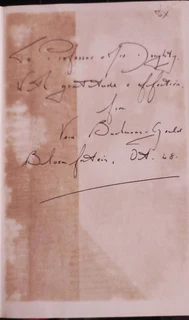 To Professor & Mrs. Doughty.
With gratitude & affection.
from
Vera Buchanan-Gould
Bloemfontein, Oct. 48.